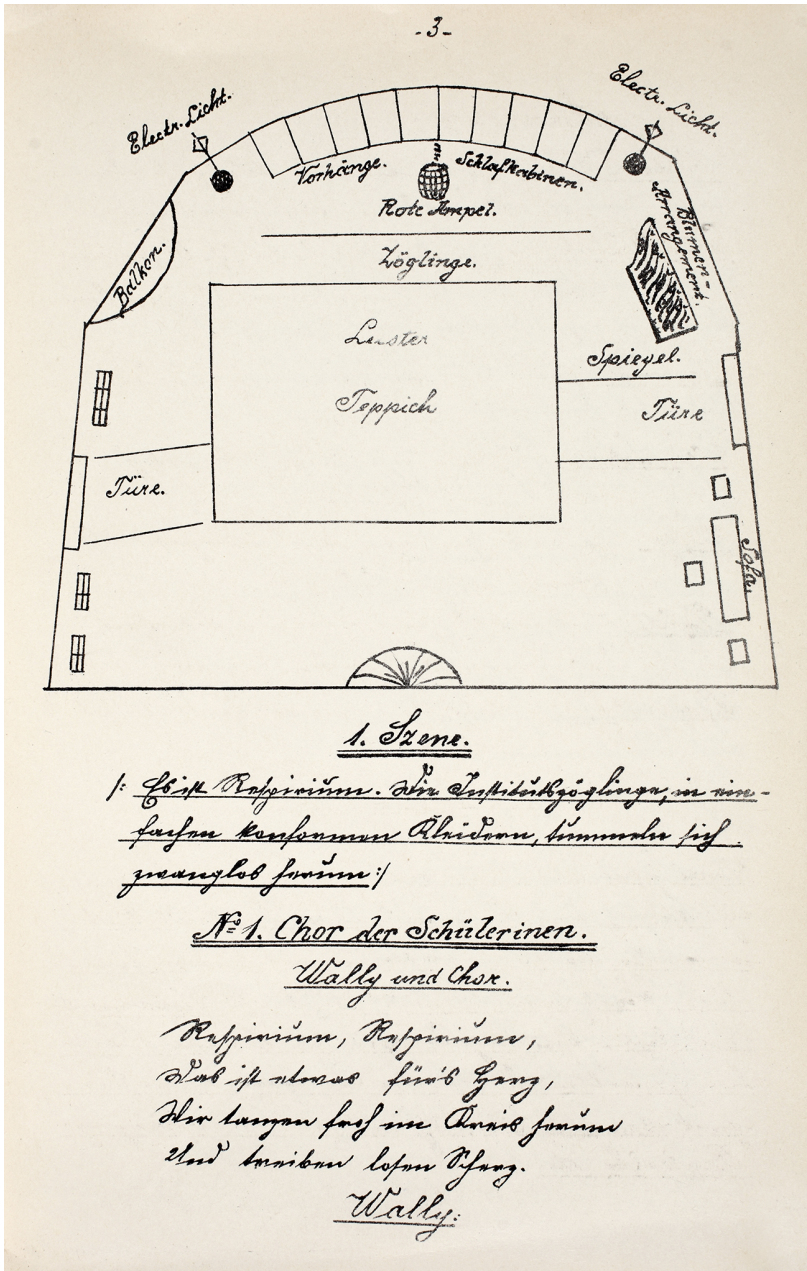 -3-
Electr. Licht.
Electr. Licht.
Vorhänge.
Schlafkabinen.
Rote Ampel.
Blumen-
Arrangement.
Balkon.
Zöglinge.
Luster
Spiegel.
Teppich
Türe
Türe.
Sofa.
1. Szene.
/: Es ist Respirium. Die Institutszöglinge, in ein-
fachen konformen Kleidern, tummeln sich
zwanglos herum :/
No 1. Chor der Schülerinen.
Wally und Chor.
Respirium, Respirium,
Das ist etwas für's Herz,
Wir tanzen froh im Kreis herum
Und treiben losen Scherz.
Wally: